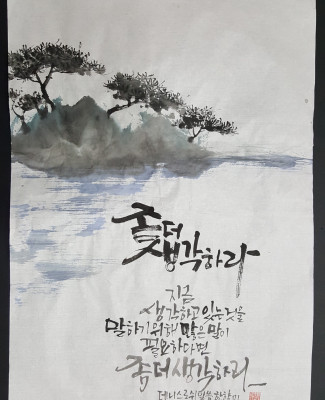 좀 더
생각하라
지금
생각하고 있는 것을
말하기 위해 많은 말이
필요하다면
좀 더 생각하라
데니스 로쉬